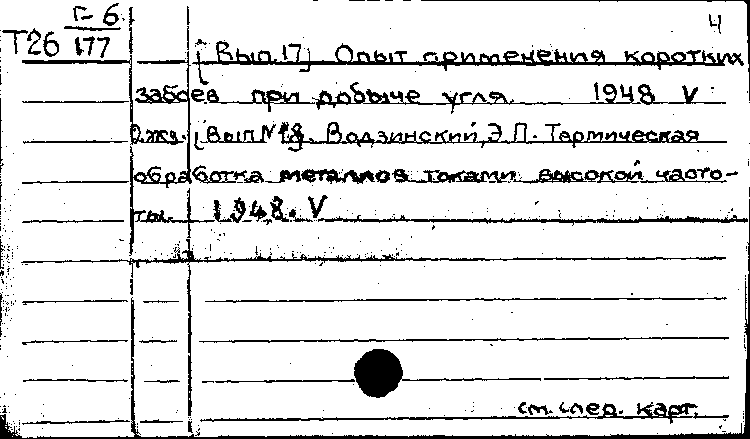 Г-6
4
Т26 177
[Вып.17] Опыт применения коротких
забоев при добыче угля. 1948 V
2жз. [Вып №18]. Водзинский, Э.П. Термическая
обработка металлов токами высокой часто-
ты. 1948. V
см. след. карт.